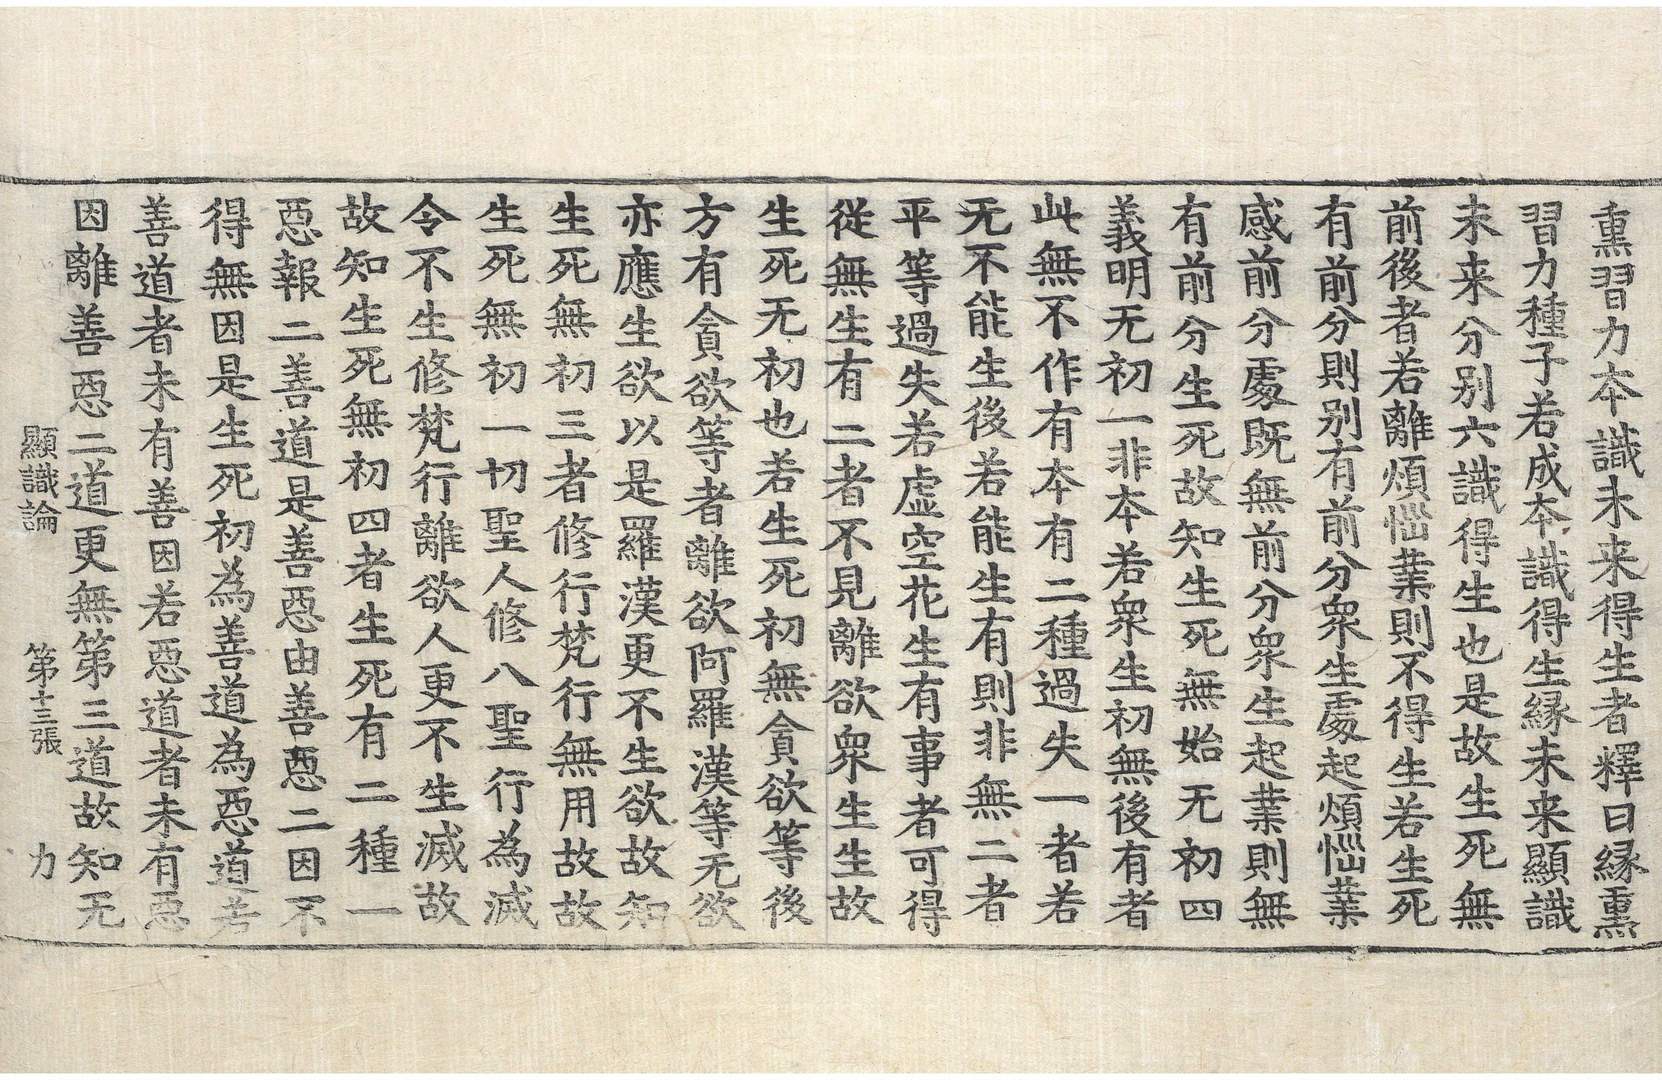 熏習力本識未来得生者釋曰縁熏
習力種子若成本識得生縁未来顯識
未来分别六識得生也是故生死無
前後者若離煩惱業則不得生若生死
有前分則别有前分衆生處起煩惱業
感前分處既無前分衆生起業則無
有前分生死故知生死無始无初四
義明无初一非本若衆生初無後有者
此無不作有本有二種過失一者若
无不能生後若能生有則非無二者
平等過失若虚空花生有事者可得
從無生有二者不見離欲衆生生故
生死无初也若生死初無貪欲等後
方有貪欲等者離欲阿羅漢等无欲
亦應生欲以是羅漢更不生欲故知
生死無初三者修行梵行無用故故
生死無初一切聖人修八聖行為滅
令不生修梵行離欲人更不生滅故
故知生死無初四者生死有二種一
惡報二善道是善惡由善惡二因不
得無因是生死初為善道為惡道若
善道者未有善因若惡道者未有惡
因離善惡二道更無第三道故知无
顯識論　第十三張　力